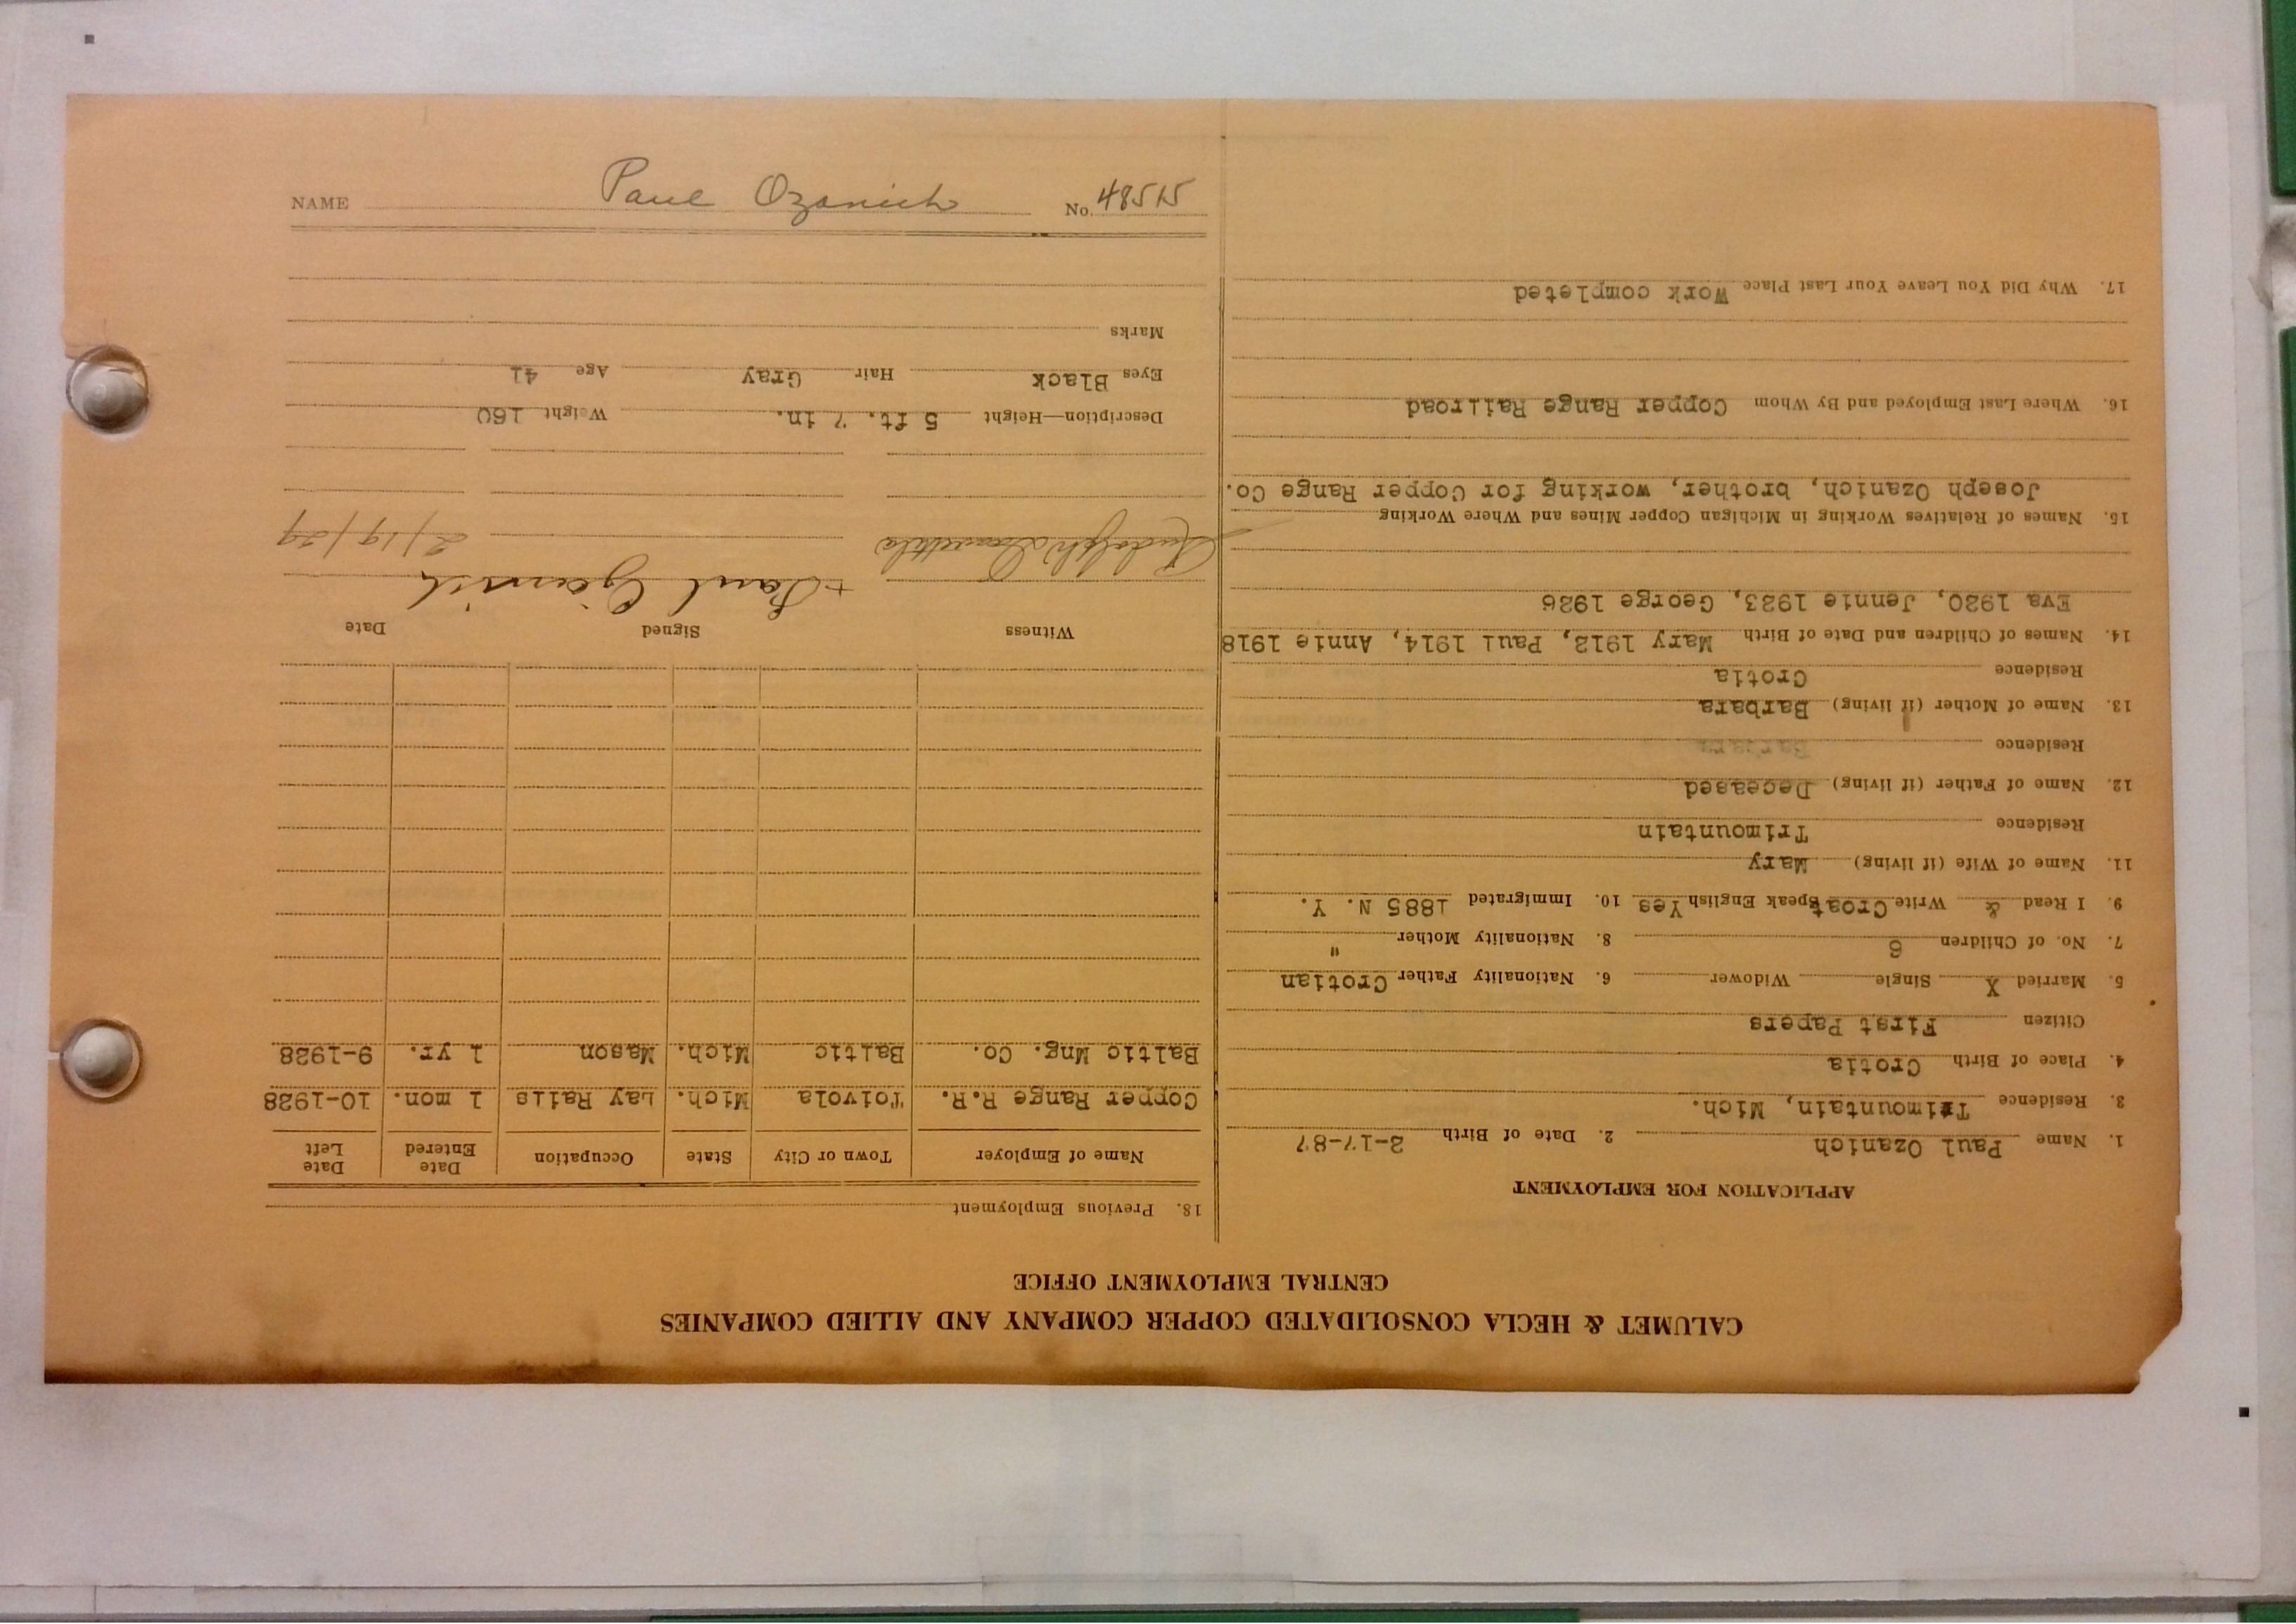 CALUMET & HECLA CONSOLIDATED COPPER COMPANY AND ALLIED COMPANIES
CENTRAL EMPLOYMENT OFFICE
APPLICATION FOR EMPLOYMENT
1. Name Paul Ozanich 2. Date of Birth 2-17-87
3. Residence Trimountain, Mich.
4. Place of Birth Crotia
Citizen First Papers
5. Married X Single Widower 6. Nationality Father Crotian
7. No. of Children 6 8. Nationality Mother "
9. I Read & Write Croat Speak English Yes 10. Immigrated 1885 N. Y.
11. Name of Wife (if living) Mary
Residence Trimountain
12. Name of Father (if living) Deceased
Residence Barbara
13. Name of Mother (if living) Barbara
Residence Crotia
14. Names of Children and Date of Birth Mary 1912, Paul 1914, Annie 1918
Eva 1920, Jennie 1923, George 1926
15. Names of Relatives Working in Michigan Copper Mines and Where Working
Joseph Ozanich, brother, working for Copper Range Co.
16. Where Last Employed and By Whom Copper Range Railroad
17. Why Did You Leave Your Last Place Work completed
18. Previous Employment
Name of Employer Town or City State Occupation Date Entered Date Left
Copper Range R.R. Toivola Mich. Lay Rails 1 mon. 10-1928
Baltic Mng. Co. Baltic Mich. Mason 1 yr. 9-1928
Witness Signed Date
Rudolph + Paul Ozanich 2/19/29
Description—Height 5 ft. 7 in. Weight 160
Eyes Black Hair Gray Age 41
Marks
NAME Paul Ozanich No. 48515